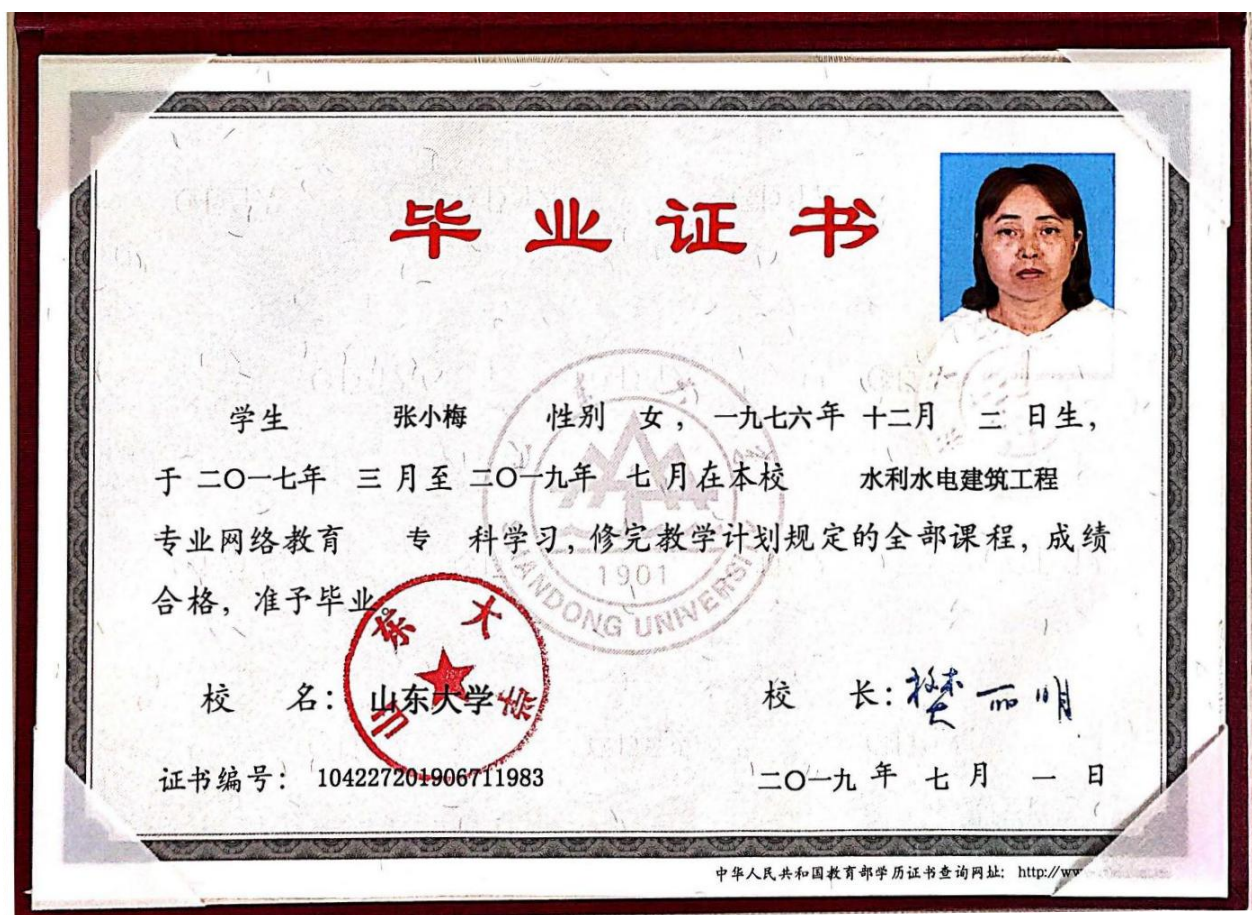 毕业证书
学生 张小梅 性别 女，一九七六年 十二月 三 日生，
于 二〇一七年 三 月至 二〇一九年 七 月在本校 水利水电建筑工程
专业网络教育 专 科学习，修完教学计划规定的全部课程，成绩
合格，准予毕业。
1901
SHANDONG UNIVERSITY
山东大学
校 名：山东大学
校 长：樊丽明
证书编号：104227201906711983
二〇一九 年 七 月 一 日
中华人民共和国教育部学历证书查询网址：http://ww